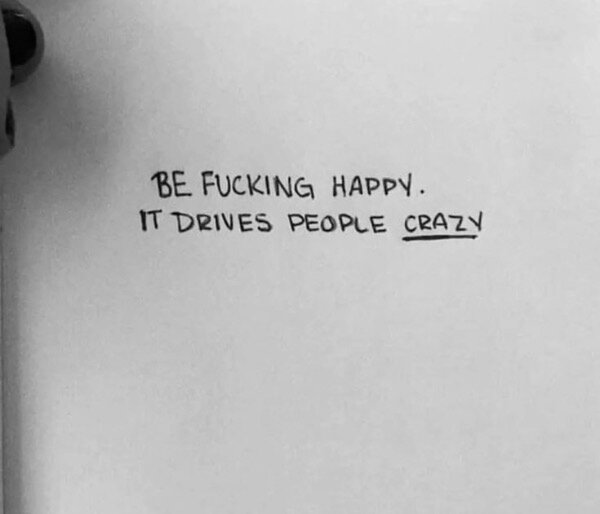 BE FUCKING HAPPY.
IT DRIVES PEOPLE CRAZY